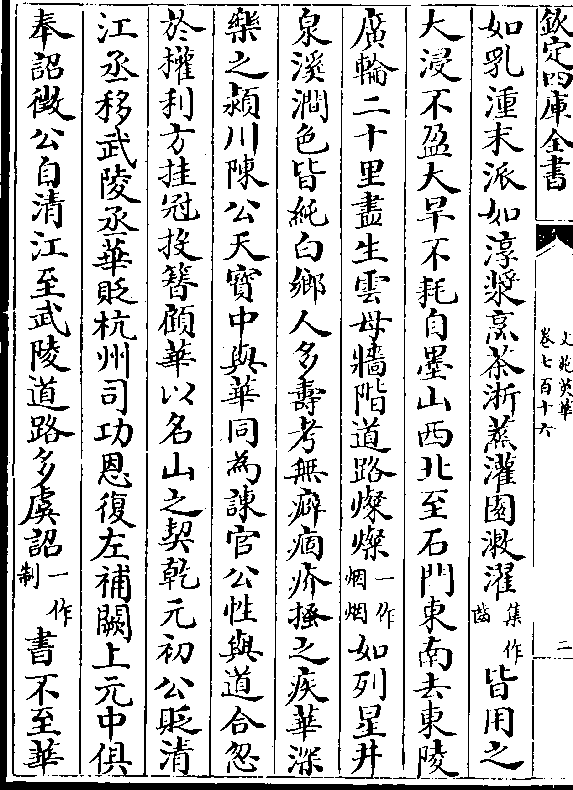 欽定四庫全書
文苑英華
卷七百十六
二
如乳湩末派如淳漿烹茶淅蒸灌園漱濯集作齒皆用之
大浸不盈大旱不耗自墨山西北至石門東南去東陵
廣輪二十里盡生雲母牆階道路燦燦一作烟烟如列星井
泉溪澗色皆純白鄉人多壽考無癖痼疥搔之疾華深
樂之潁川陳公天寶中與華同為諫官公性與道合忽
於權利方挂冠投簪顧華以名山之契乾元初公貶清
江丞移武陵丞華貶杭州司功恩復左補闕上元中俱
奉詔徵公自清江至武陵道路多虞詔一作制書不至華